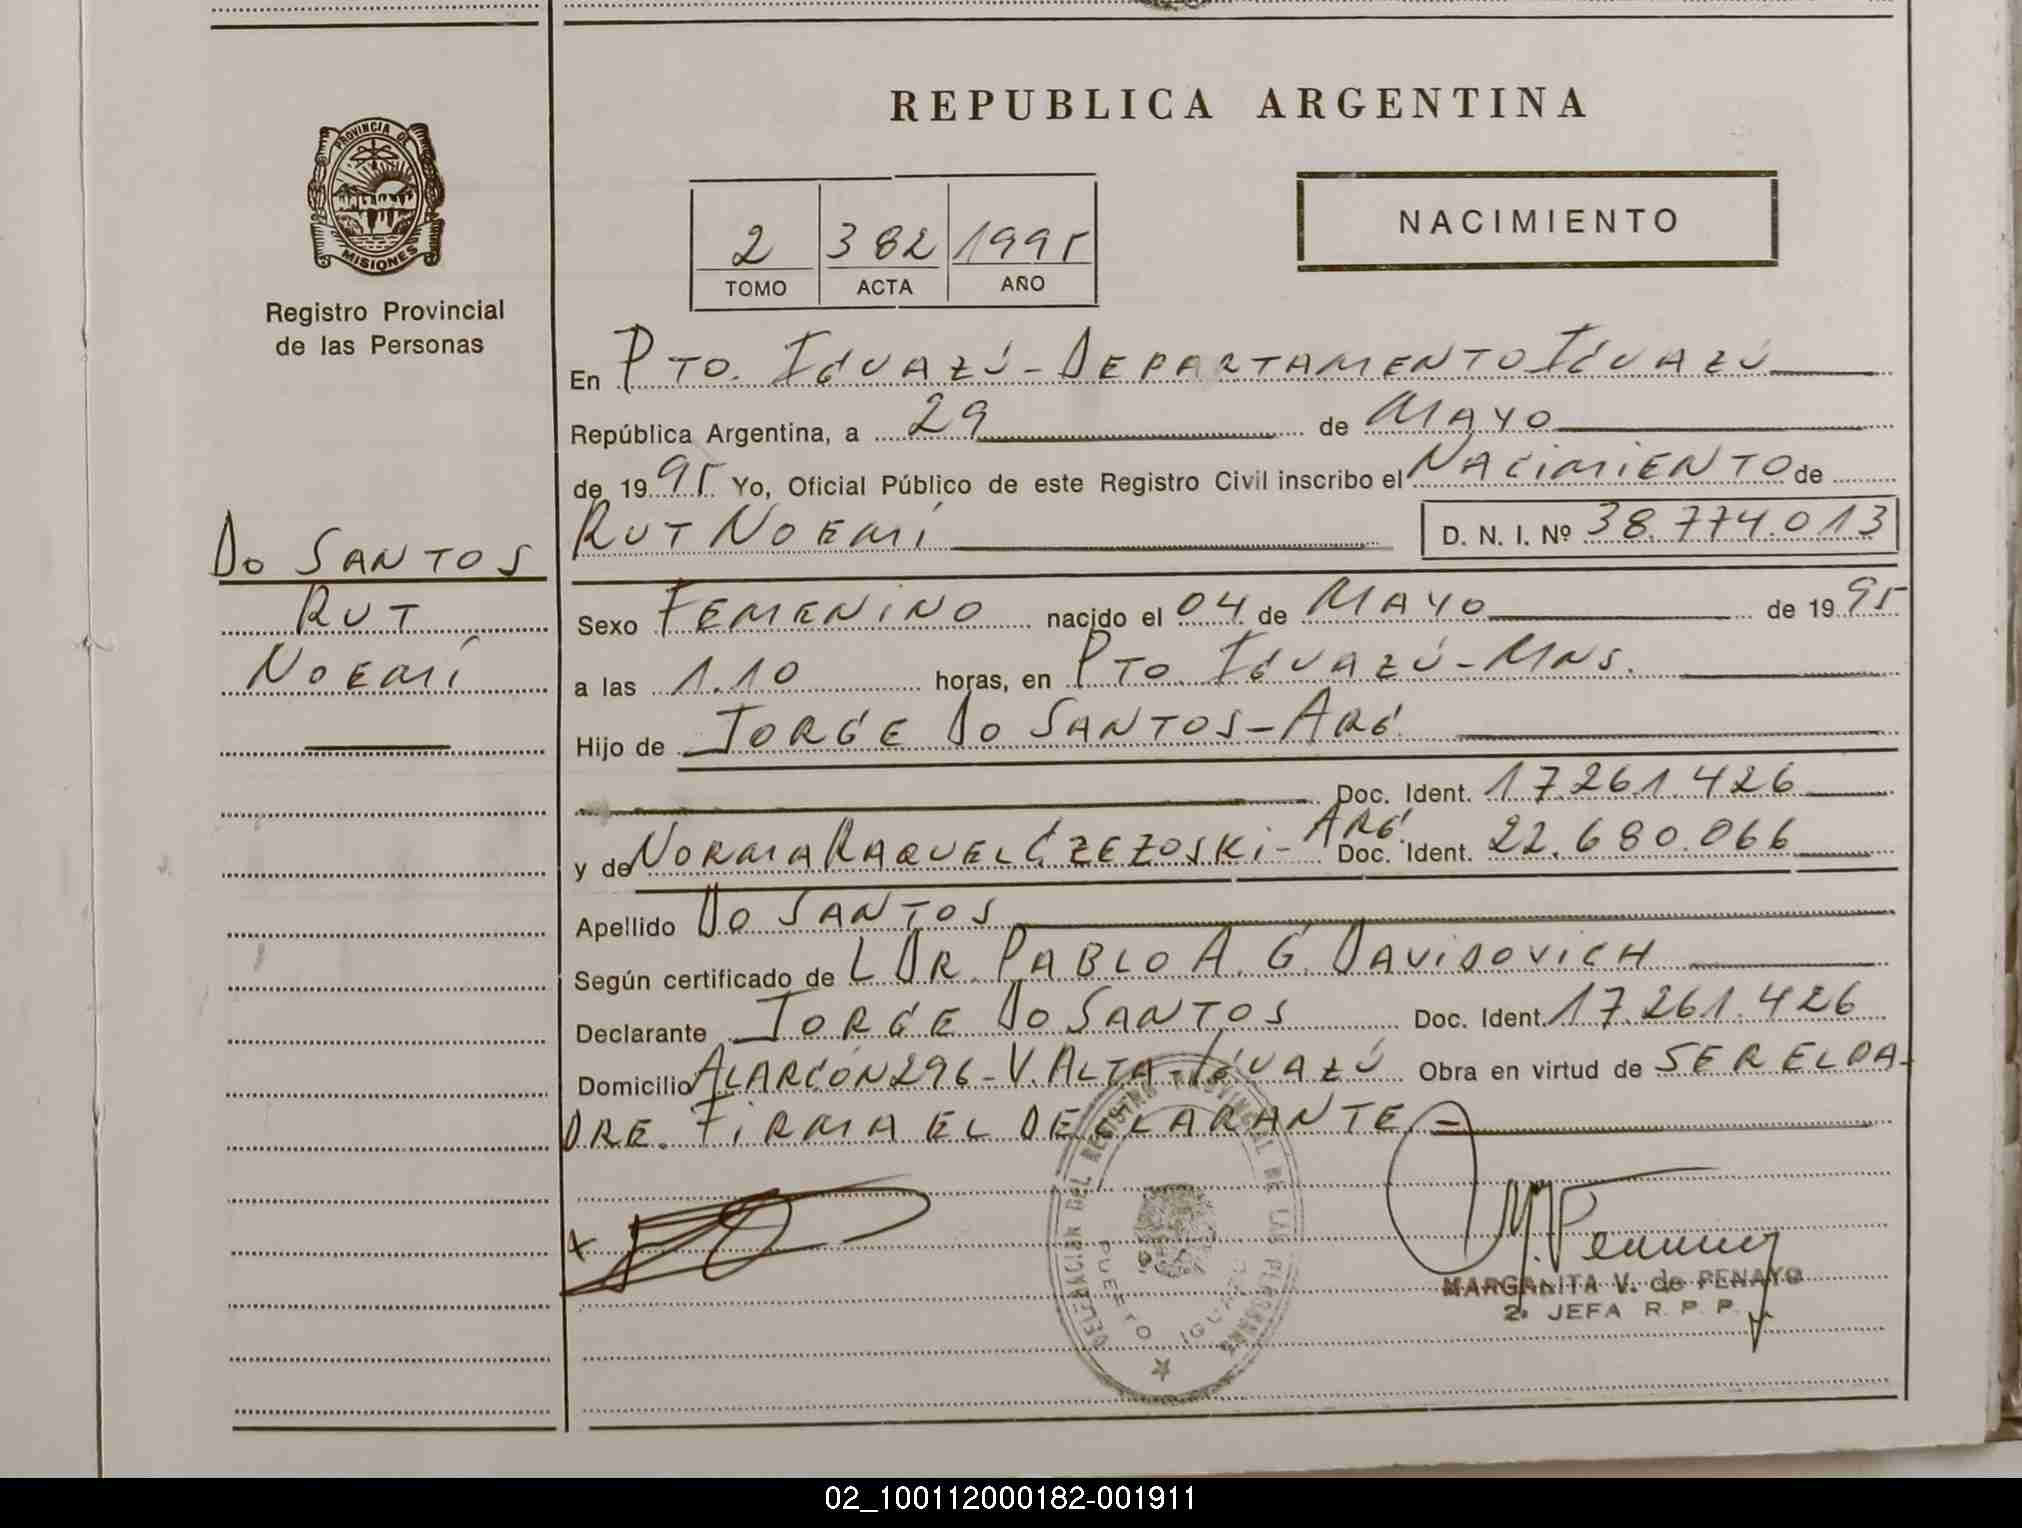 REPUBLICA ARGENTINA
PROVINCIA DE MISIONES
Registro Provincial
de las Personas
2 382 1995
TOMO ACTA AÑO
NACIMIENTO
En PTO. IGUAZÚ - DEPARTAMENTO IGUAZÚ
República Argentina, a 29 de MAYO
de 1995 Yo, Oficial Público de este Registro Civil inscribo el NACIMIENTO de
RUT NOEMÍ D. N. I. Nº 38.774.013
DO SANTOS
RUT
NOEMÍ
Sexo FEMENINO nacido el 04 de MAYO de 1995
a las 1.10 horas, en PTO. IGUAZÚ - MNS.
Hijo de JORGE DO SANTOS - ARG.
Doc. Ident. 17.261.426
y de NORMA RAQUEL CZEZOSKI - ARG. Doc. Ident. 22.680.066
Apellido DO SANTOS
Según certificado de L DR. PABLO A. G. DAVIDOVICH
Declarante JORGE DO SANTOS Doc. Ident. 17.261.426
Domicilio ALARCÓN 296 - V. ALTA - IGUAZÚ Obra en virtud de SER EL PA-
DRE. FIRMA EL DECLARANTE. =
DELEGACION DEL REGISTRO PROVINCIAL DE LAS PERSONAS
PUERTO IGUAZU
MARGARITA V. de PENAYO
2ª JEFA R. P. P.
02_100112000182-001911